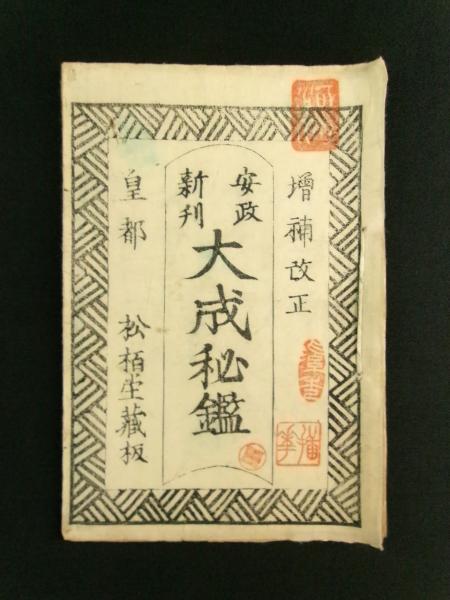 增補改正
安政
新刊
大成秘鑑
皇都 松栢堂藏板